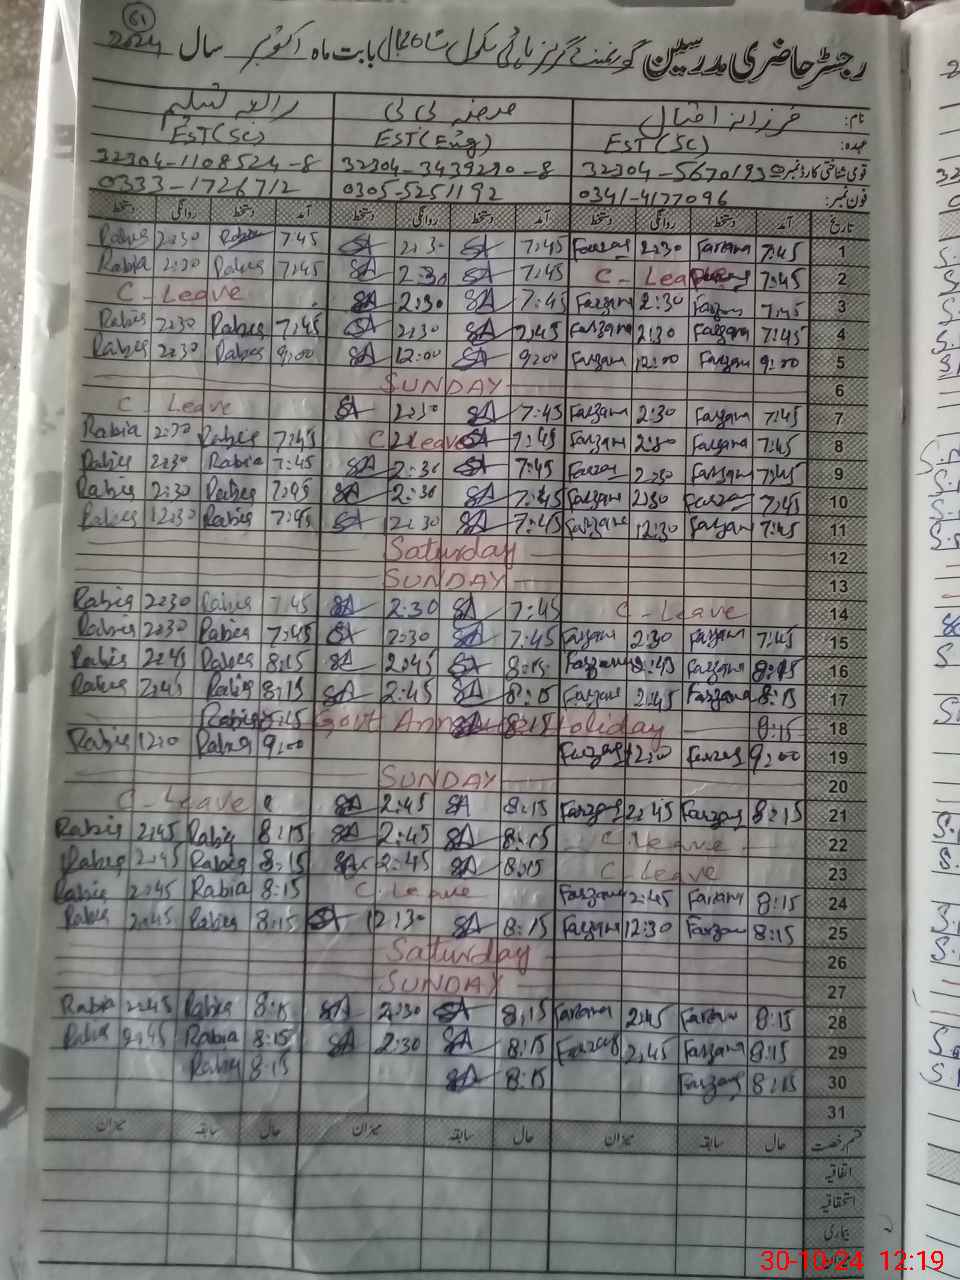 61
رجسٹر حاضری مدرسین گورنمنٹ گرلز ہائی سکول بابت ماہ اکتوبر سال 2024
نام: فرزانہ اقبال
رابعہ تسلیم
عہدہ: EST (SC) EST (Eng) EST (SC)
قومی شناختی کارڈ نمبر 32304-5670193 32304-3439290-8 32304-1108524-8
فون نمبر: 0341-4177096 0305-5251192 0333-1726712
تاریخ آمد دستخط روانگی دستخط آمد دستخط روانگی دستخط آمد دستخط روانگی دستخط
Rabia 2:30 Rabia 7:45 SA 2:30 SA 7:45 Farzana 2:30 Farzana 7:45 1
Rabia 2:30 Rabia 7:45 SA 2:30 SA 7:45 C - Leave 7:45 2
C - Leave SA 2:30 SA 7:45 Farzana 2:30 Farzana 7:45 3
Rabia 2:30 Rabia 7:45 SA 2:30 SA 7:45 Farzana 2:30 Farzana 7:45 4
Rabia 2:30 Rabia 9:00 SA 12:00 SA 9:00 Farzana 12:00 Farzana 9:00 5
SUNDAY 6
C - Leave SA 2:30 SA 7:45 Farzana 2:30 Farzana 7:45 7
Rabia 2:30 Rabia 7:45 C Leave SA 7:45 Farzana 2:30 Farzana 7:45 8
Rabia 2:30 Rabia 7:45 SA 2:30 SA 7:45 Farzana 2:30 Farzana 7:45 9
Rabia 2:30 Rabia 7:45 SA 2:30 SA 7:45 Farzana 2:30 Farzana 7:45 10
Rabia 12:30 Rabia 7:45 SA 12:30 SA 7:45 Farzana 12:30 Farzana 7:45 11
Saturday 12
SUNDAY 13
Rabia 2:30 Rabia 7:45 SA 2:30 SA 7:45 C - Leave 14
Rabia 2:30 Rabia 7:45 SA 2:30 SA 7:45 Farzana 2:30 Farzana 7:45 15
Rabia 2:45 Rabia 8:15 SA 2:45 SA 8:15 Farzana 2:45 Farzana 8:15 16
Rabia 2:45 Rabia 8:15 SA 2:45 SA 8:15 Farzana 2:45 Farzana 8:15 17
Rabia 8:15 Govt SA 8:15 Holiday 8:15 18
Rabia 12:0 Rabia 9:00 Farzana 12:0 Farzana 9:00 19
SUNDAY 20
C - Leave SA 2:45 SA 8:15 Farzana 2:45 Farzana 8:15 21
Rabia 2:45 Rabia 8:15 SA 2:45 SA 8:15 C - Leave 22
Rabia 2:45 Rabia 8:15 SA 2:45 SA 8:15 C - Leave 23
Rabia 2:45 Rabia 8:15 C - Leave Farzana 2:45 Farzana 8:15 24
Rabia 2:45 Rabia 8:15 SA 12:30 SA 8:15 Farzana 12:30 Farzana 8:15 25
Saturday 26
SUNDAY 27
Rabia 2:45 Rabia 8:15 SA 2:30 SA 8:15 Farzana 2:45 Farzana 8:15 28
Rabia 2:45 Rabia 8:15 SA 2:30 SA 8:15 Farzana 2:45 Farzana 8:15 29
Rabia 8:15 SA 8:15 Farzana 8:15 30
31
قسم رخصت حال سابقہ میزان حال سابقہ میزان حال سابقہ میزان
اتفاقیہ
استحقاقیہ
بیماری
میزان
30-10-24 12:19